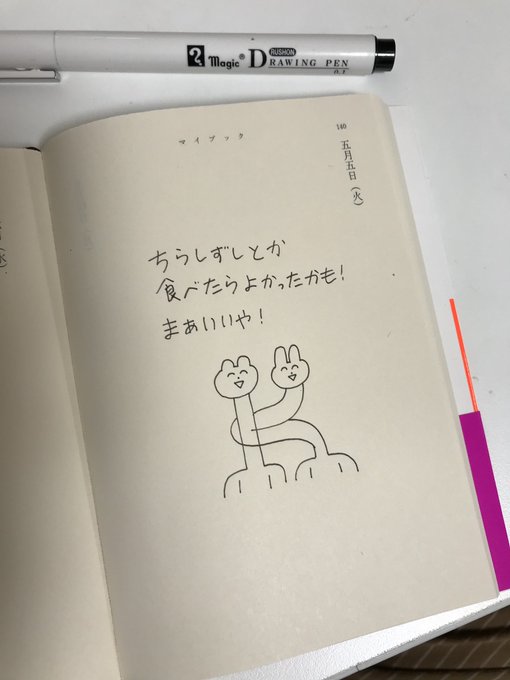 RUSHON
Magic® DRAWING PEN
0.1
マイブック
140
五月五日（火）
ちらしずしとか
食べたらよかったかも！
まぁいいや！